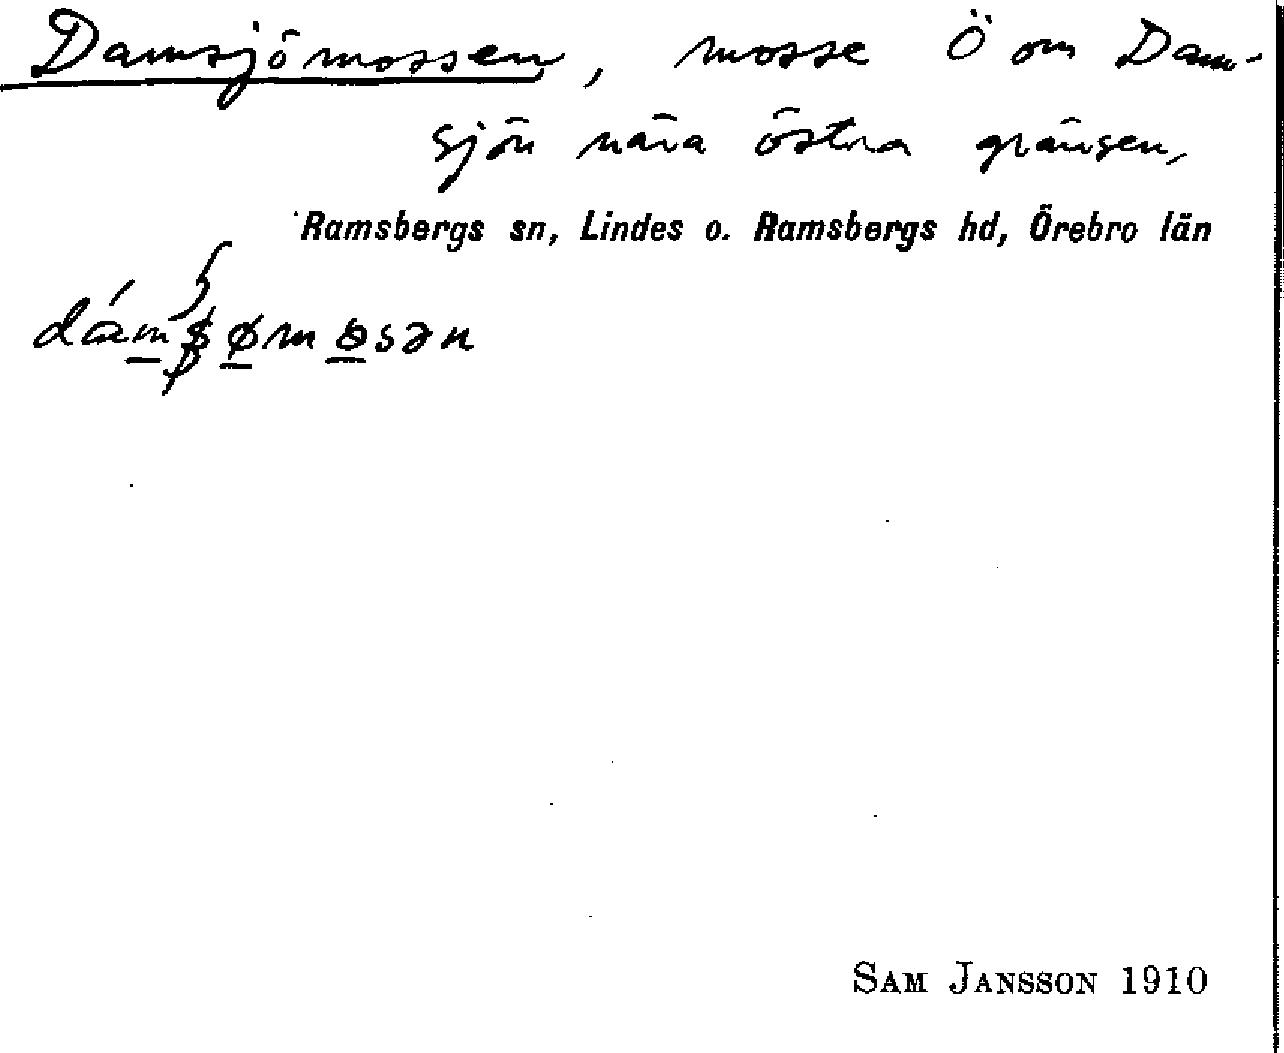 Damsjömossen, mosse Ö om Dam-
sjön nära östra gränsen,
Ramsbergs sn, Lindes o. Ramsbergs hd, Örebro län
SAM JANSSON 1910